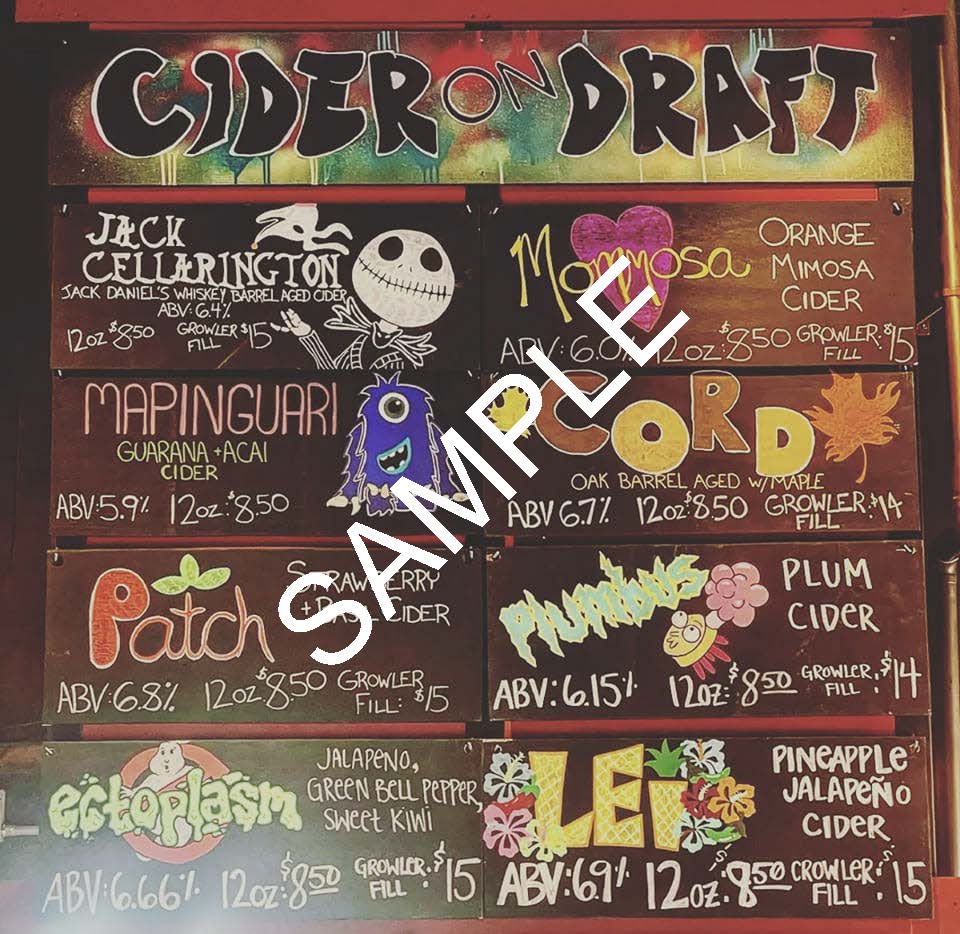 CIDER ON DRAFT
JACK
CELLARINGTON
JACK DANIEL'S WHISKEY BARREL AGED CIDER
ABV: 6.4%
12oz $8.50 GROWLER $15
FILL
Mommosa
ORANGE
MIMOSA
CIDER
ABV: 6.0% 12oz: $8.50 GROWLER: $15
FILL
MAPINGUARI
GUARANA + ACAI
CIDER
ABV: 5.9% 12oz: $8.50
CORD
OAK BARREL AGED W/ MAPLE
ABV 6.7% 12oz: $8.50 GROWLER $14
FILL
Patch
STRAWBERRY
+ BASIL CIDER
ABV: 6.8% 12oz: $8.50 GROWLER
FILL: $15
Plumbus
PLUM
CIDER
ABV: 6.15% 12oz: $8.50 GROWLER: $14
FILL
ectoplasm
JALAPENO,
GREEN BELL PEPPER,
SWEET KIWI
ABV: 6.66% 12oz: $8.50 GROWLER: $15
FILL
LEi
PINEAPPLE
JALAPEÑO
CIDER
ABV: 6.9% 12oz: $8.50 CROWLER: $15
FILL
SAMPLE